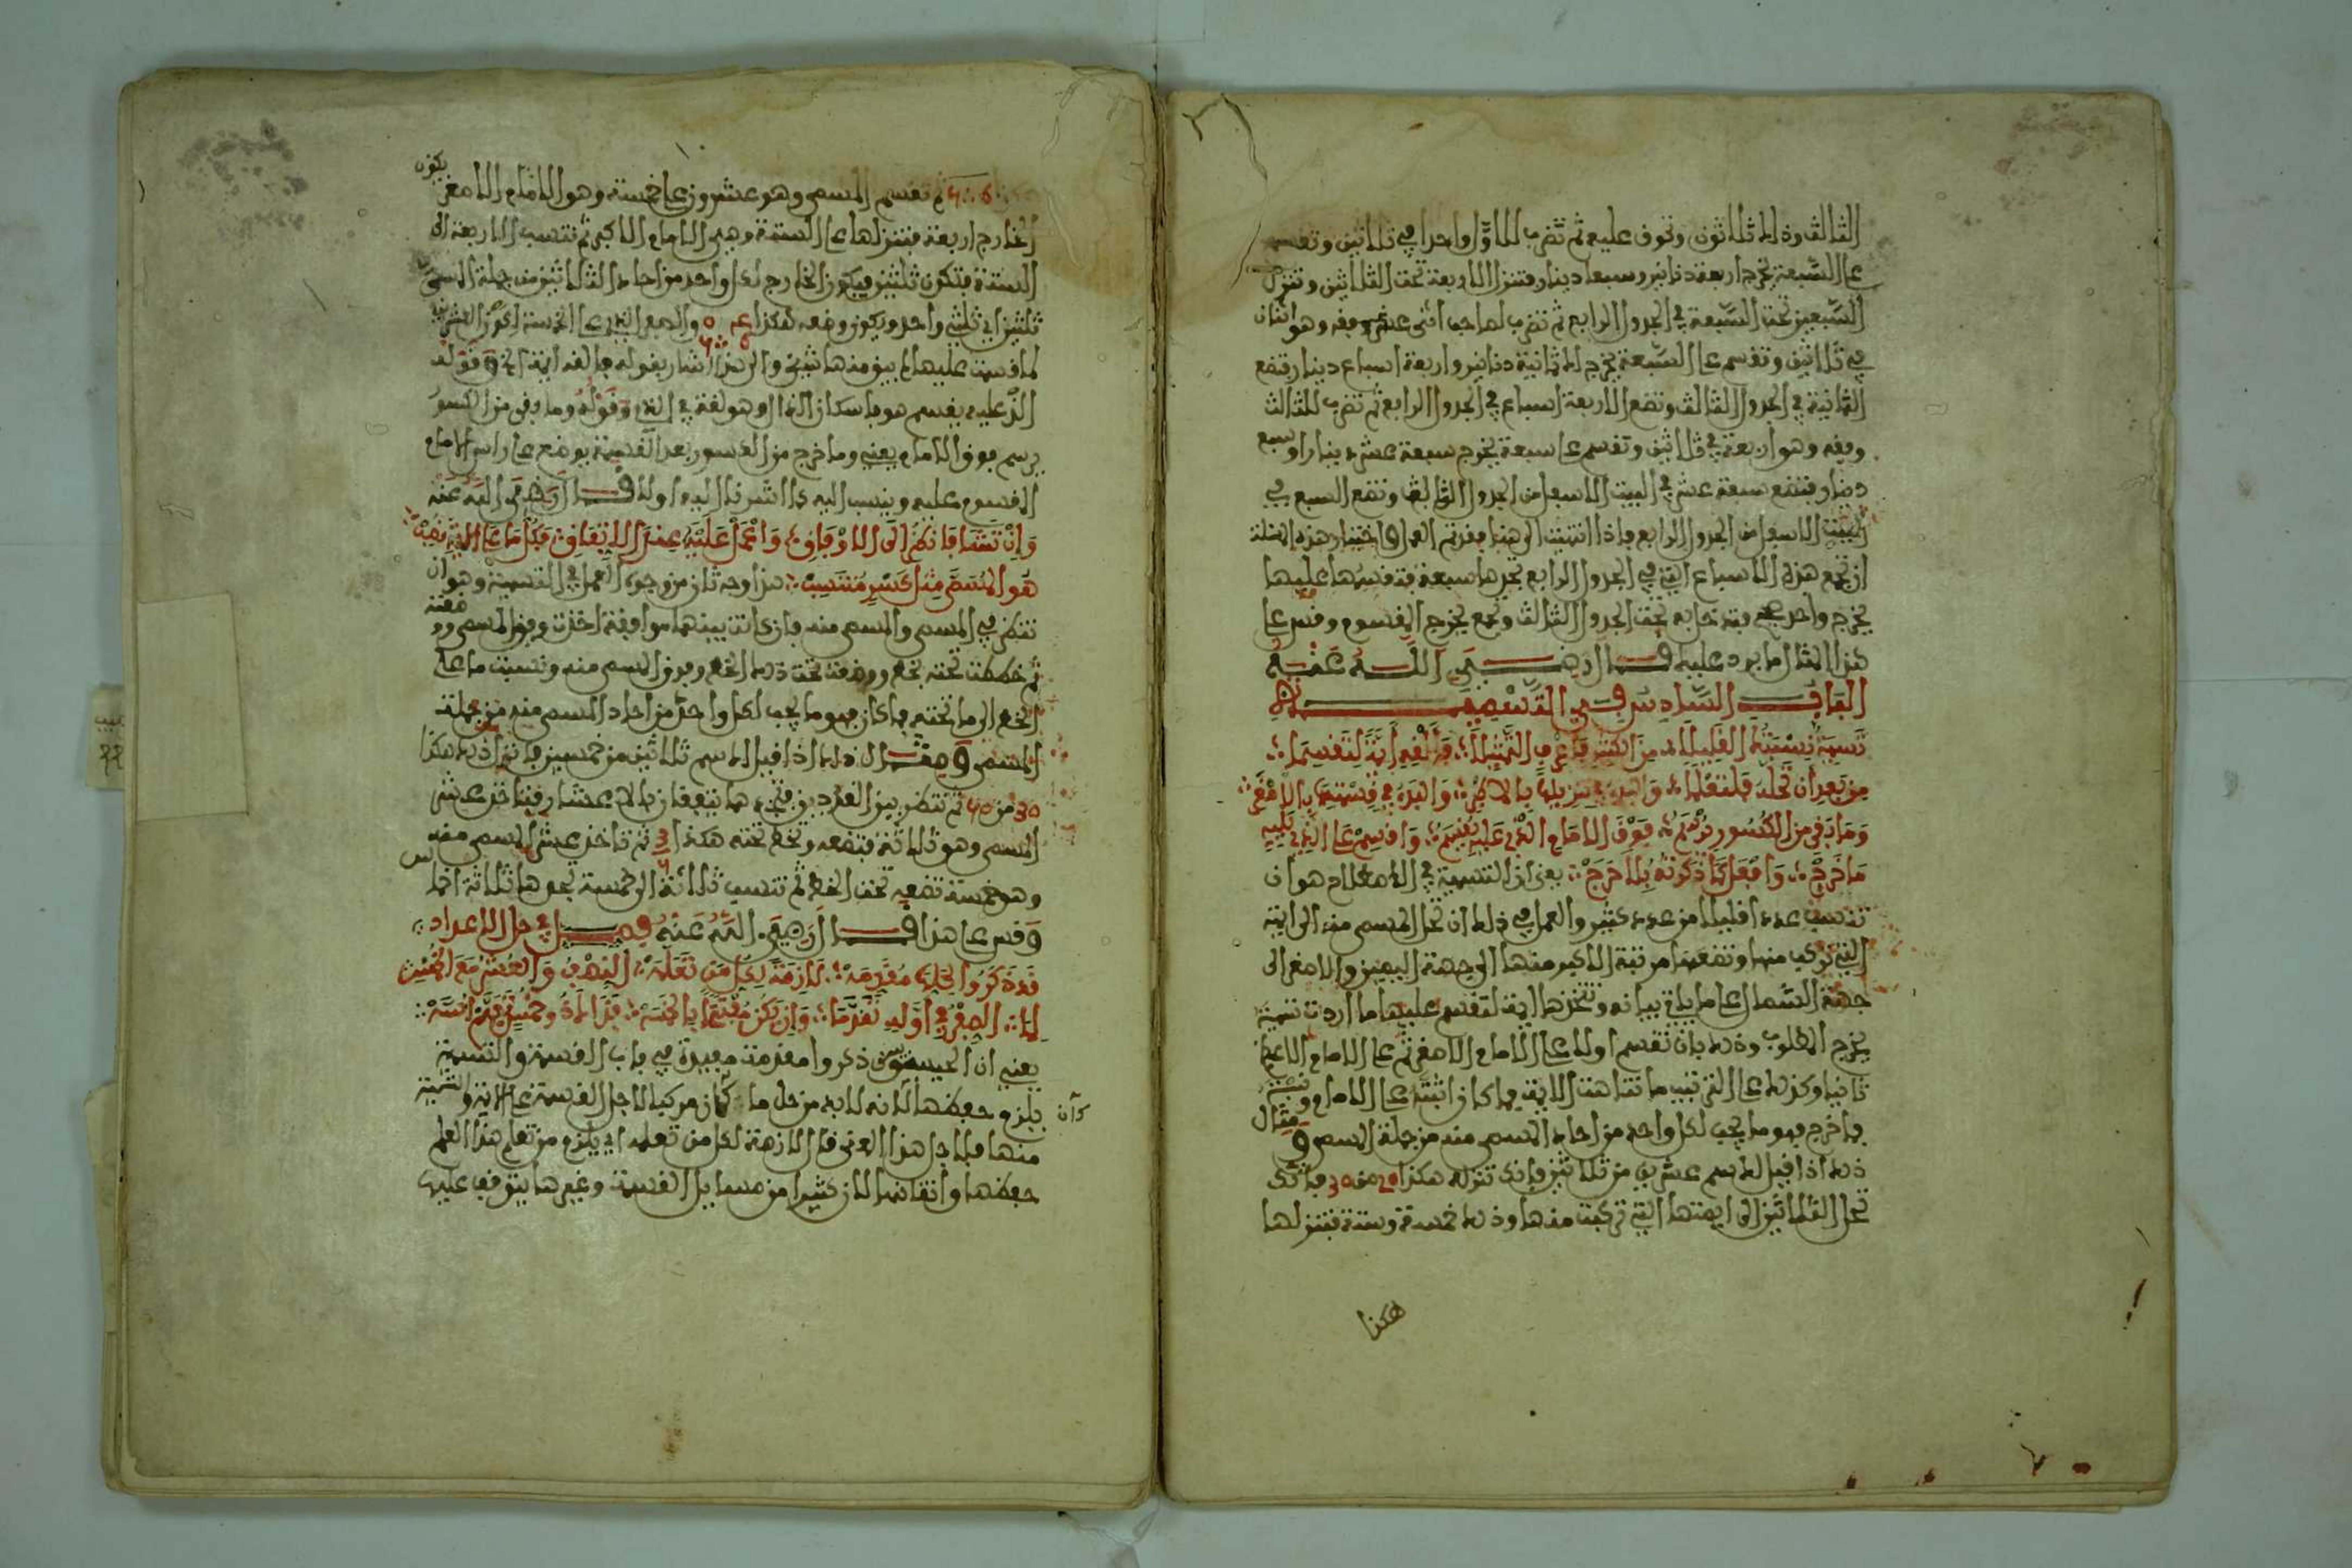 الثالث وذلك ثلاثون وتحوق عليه ثم تضرب للاول واحدا في ثلاثين وتقسم
على السبعة تخرج اربعة دنانير وسبعا دينار فتنزل الاربعة تحت الثلاثين وتنزل
السبعين تحت السبعة في الجدول الرابع ثم تضرب لصاحب اثنى عشر وفقه وهو اثنان
في ثلاثين وتقسم على السبعة يخرج لك ثمانية دنانير واربعة اسباع دينار فتضع
الثمانية في الجدول الثالث وتضع الاربعة اسباع في الجدول الرابع ثم تضرب للثالث
وفقه وهو اربعة في ثلاثين وتقسم على سبعة يخرج سبعة عشر دينارا وسبع
دينار فتضع سبعة عشر في البيت الاسفل من الجدول الثالث وتضع السبع في
البيت الاسفل من الجدول الرابع فاذا انتهيت الى هنا فقد تم العمل واختبار هذه المسئلة
ان تجمع هذه الاسباع التي في الجدول الرابع تجدها سبعة فتقسمها عليها
يخرج واحد فتدخل به تحت الجدول الثالث وتجمع يخرج المقسوم وقس على
هذا المثال ما يرد عليك قال رضي الله عنه
الباب السادس في التسمية
تسمية نسبتك القليل من الكثير فاعرف التمثيلا وألف أيمة لتقسما
من بعد ان تحله فلتعلما وابدأ في تنزيله بالاكبر وابدأ في قسمته بالاصغر
وما بقي من الكسور يرسم فوق الامام الذي عليه يقسم واقسم على الذي يليه
ما خرج وافعل كما ذكرته بلا حرج يعني ان التسمية في الاصطلاح هو ان
تنسب عددا قليلا من عدد كثير والعمل في ذلك ان تحل المسمى منه الى ايمته
التي تركب منها وتضعها مرتبة الاكبر منها الى جهة اليمين والاصغر الى
جهة الشمال على ما ياتي بيانه وتتخذها ايمة لتقسم عليها ما اردت تسميته
يخرج المطلوب وذلك بان تقسم اولا على الامام الاصغر ثم على الامام الاعظم
ثانيا وكذلك على الترتيب ما تناهت الايمة فما كان اثبته على الامام ونسبته
فما خرج فهو ما يجب لكل واحد من احاد المسمى منه من جملة المسمى ومثال
ذلك اذا قيل لك سم عشرين من ثلاثين فانك تنزله هكذا 20 من 30 فانك
تحل الثلاثين الى ايمتها التي تركبت منها وذلك خمسة وستة فتنزلها
هكذا
ثم تقسم المسمى وهو عشرون على خمسة وهو الامام الاصغر يكون
الخارج اربعة فتنزلها على الستة وهي الامام الاكبر ثم تنسب الاربعة الى
الستة فتكون ثلثين فيكون الخارج لكل واحد من احاد الثلاثين من جملة المسمى
ثلثين اي ثلثي واحد ويكون وضعه هكذا والصفر الذي على الخمسة لكون العشرين
لما قسمت عليها لم يبق منها شيء والى هذا اشار بقوله فالف ايمة الخ وقوله
الذ عليه يقسم هو باسكان الذال وهو لغة في الذي وقوله وما بقي من الكسور
يرسم فوق الامام يعني وما خرج من الكسور بعد القسمة يوضع على راس الامام
المقسوم عليه وينسب اليه كما اشرنا اليه اولا قال رضي الله عنه
وان تشا فانظر الى الاوفاق واعمل عليه عند الاتفاق فكل ما على الذي تضعه
هو المسمى مثل كسر منتسب هذا وجه ثان من وجوه العمل في التسمية وهو ان
تنظر في المسمى والمسمى منه فان كانت بينهما موافقة اخذت وفق المسمى ووضعته
ثم خططت تحته بخط ووضعت تحت ذلك الخط وفق المسمى منه ونسبت ما على
الخط الى ما تحته فما كان فهو ما يجب لكل واحد من احاد المسمى منه من جملة
المسمى ومثال ذلك اذا قيل لك سم ثلاثين من خمسين فانزل ذلك هكذا
30 من 50 ثم تنظر بين العددين فتجدهما يتفقان بالاعشار فتاخذ عشر
المسمى وهو ثلاثة فتضعه وتخط تحته هكذا 3 ثم تاخذ عشر المسمى منه
وهو خمسة تضعه تحت الخط ثم تنسب ثلاثة الى خمسة تجدها ثلاثة اخماس
وقس على هذا قال رضي الله عنه فصل في حل الاعداد
قد ذكروا للحل مقدمة لازمة لكل من تعلمه النصف والعشر مع الخمس
لما الصفر في اوله تقدما وان يكن مفتتحا بالخمسة
يعني ان الحيسوبين ذكروا مقدمة مفيدة في باب القسمة والتسمية
يلزم حفظها لانه لابد من حل ما كان مركبا لاجل القسمة على ايمته والتسمية
منها فلاجل هذا المعنى قال لازمة لكل من تعلمه اي يلزم من تعلم هذا العلم
حفظها واتقانها لان كثيرا من مسايل القسمة وغيرها يتوقف عليها